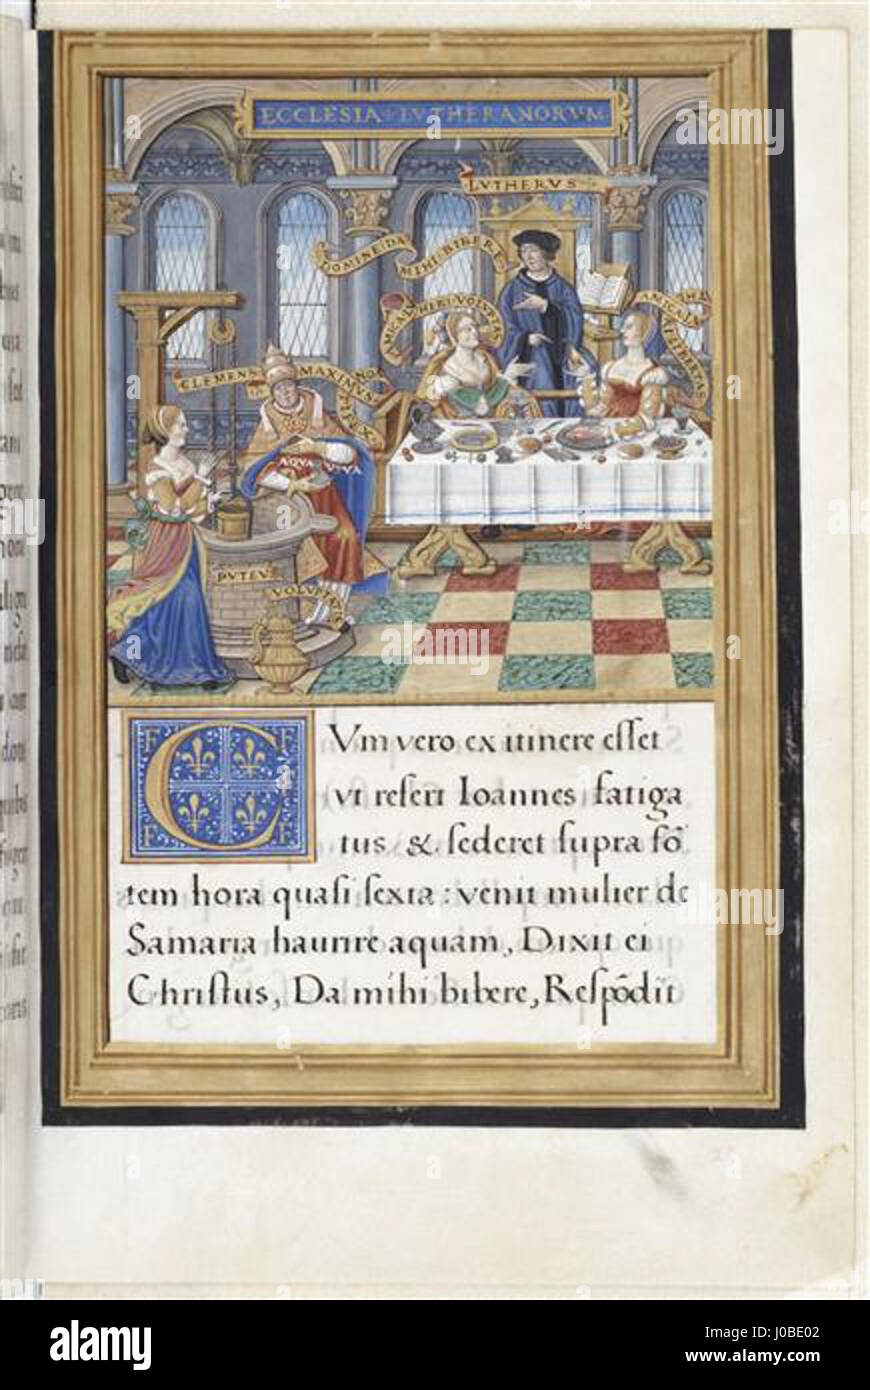 ECCLESIA LVTHERANORVM
LVTHERVS
DOMINE DA
MIHI BIBERE
CLEMENS
MAXIMVS
AQVA VIVA
PVTEV
VOLVPTA
F F
C
F F
Vm vero ex itinere esset
vt refert Ioannes fatiga
tus & sederet supra fō
tem hora quasi sexta : venit mulier de
Samaria haurire aquam, Dixit ei
Christus, Da mihi bibere, Respōdit
alamy
a
alamy
Image ID: J0BE02
www.alamy.com